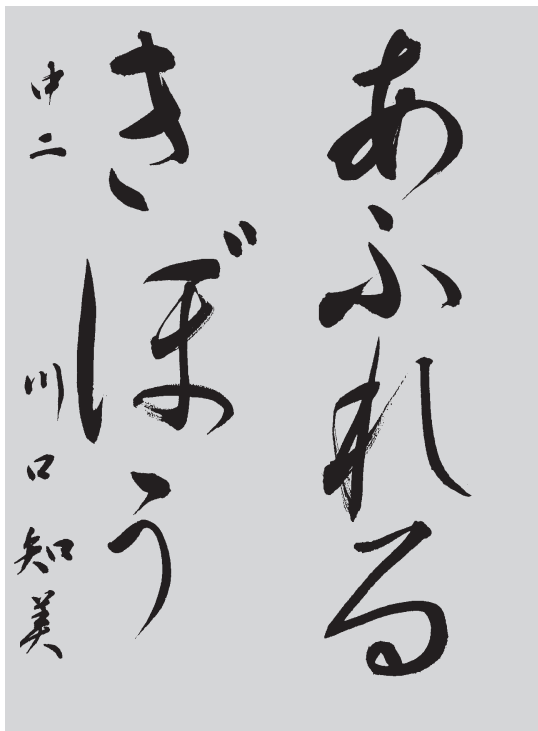 あふれる
きぼう
中二 川口知美